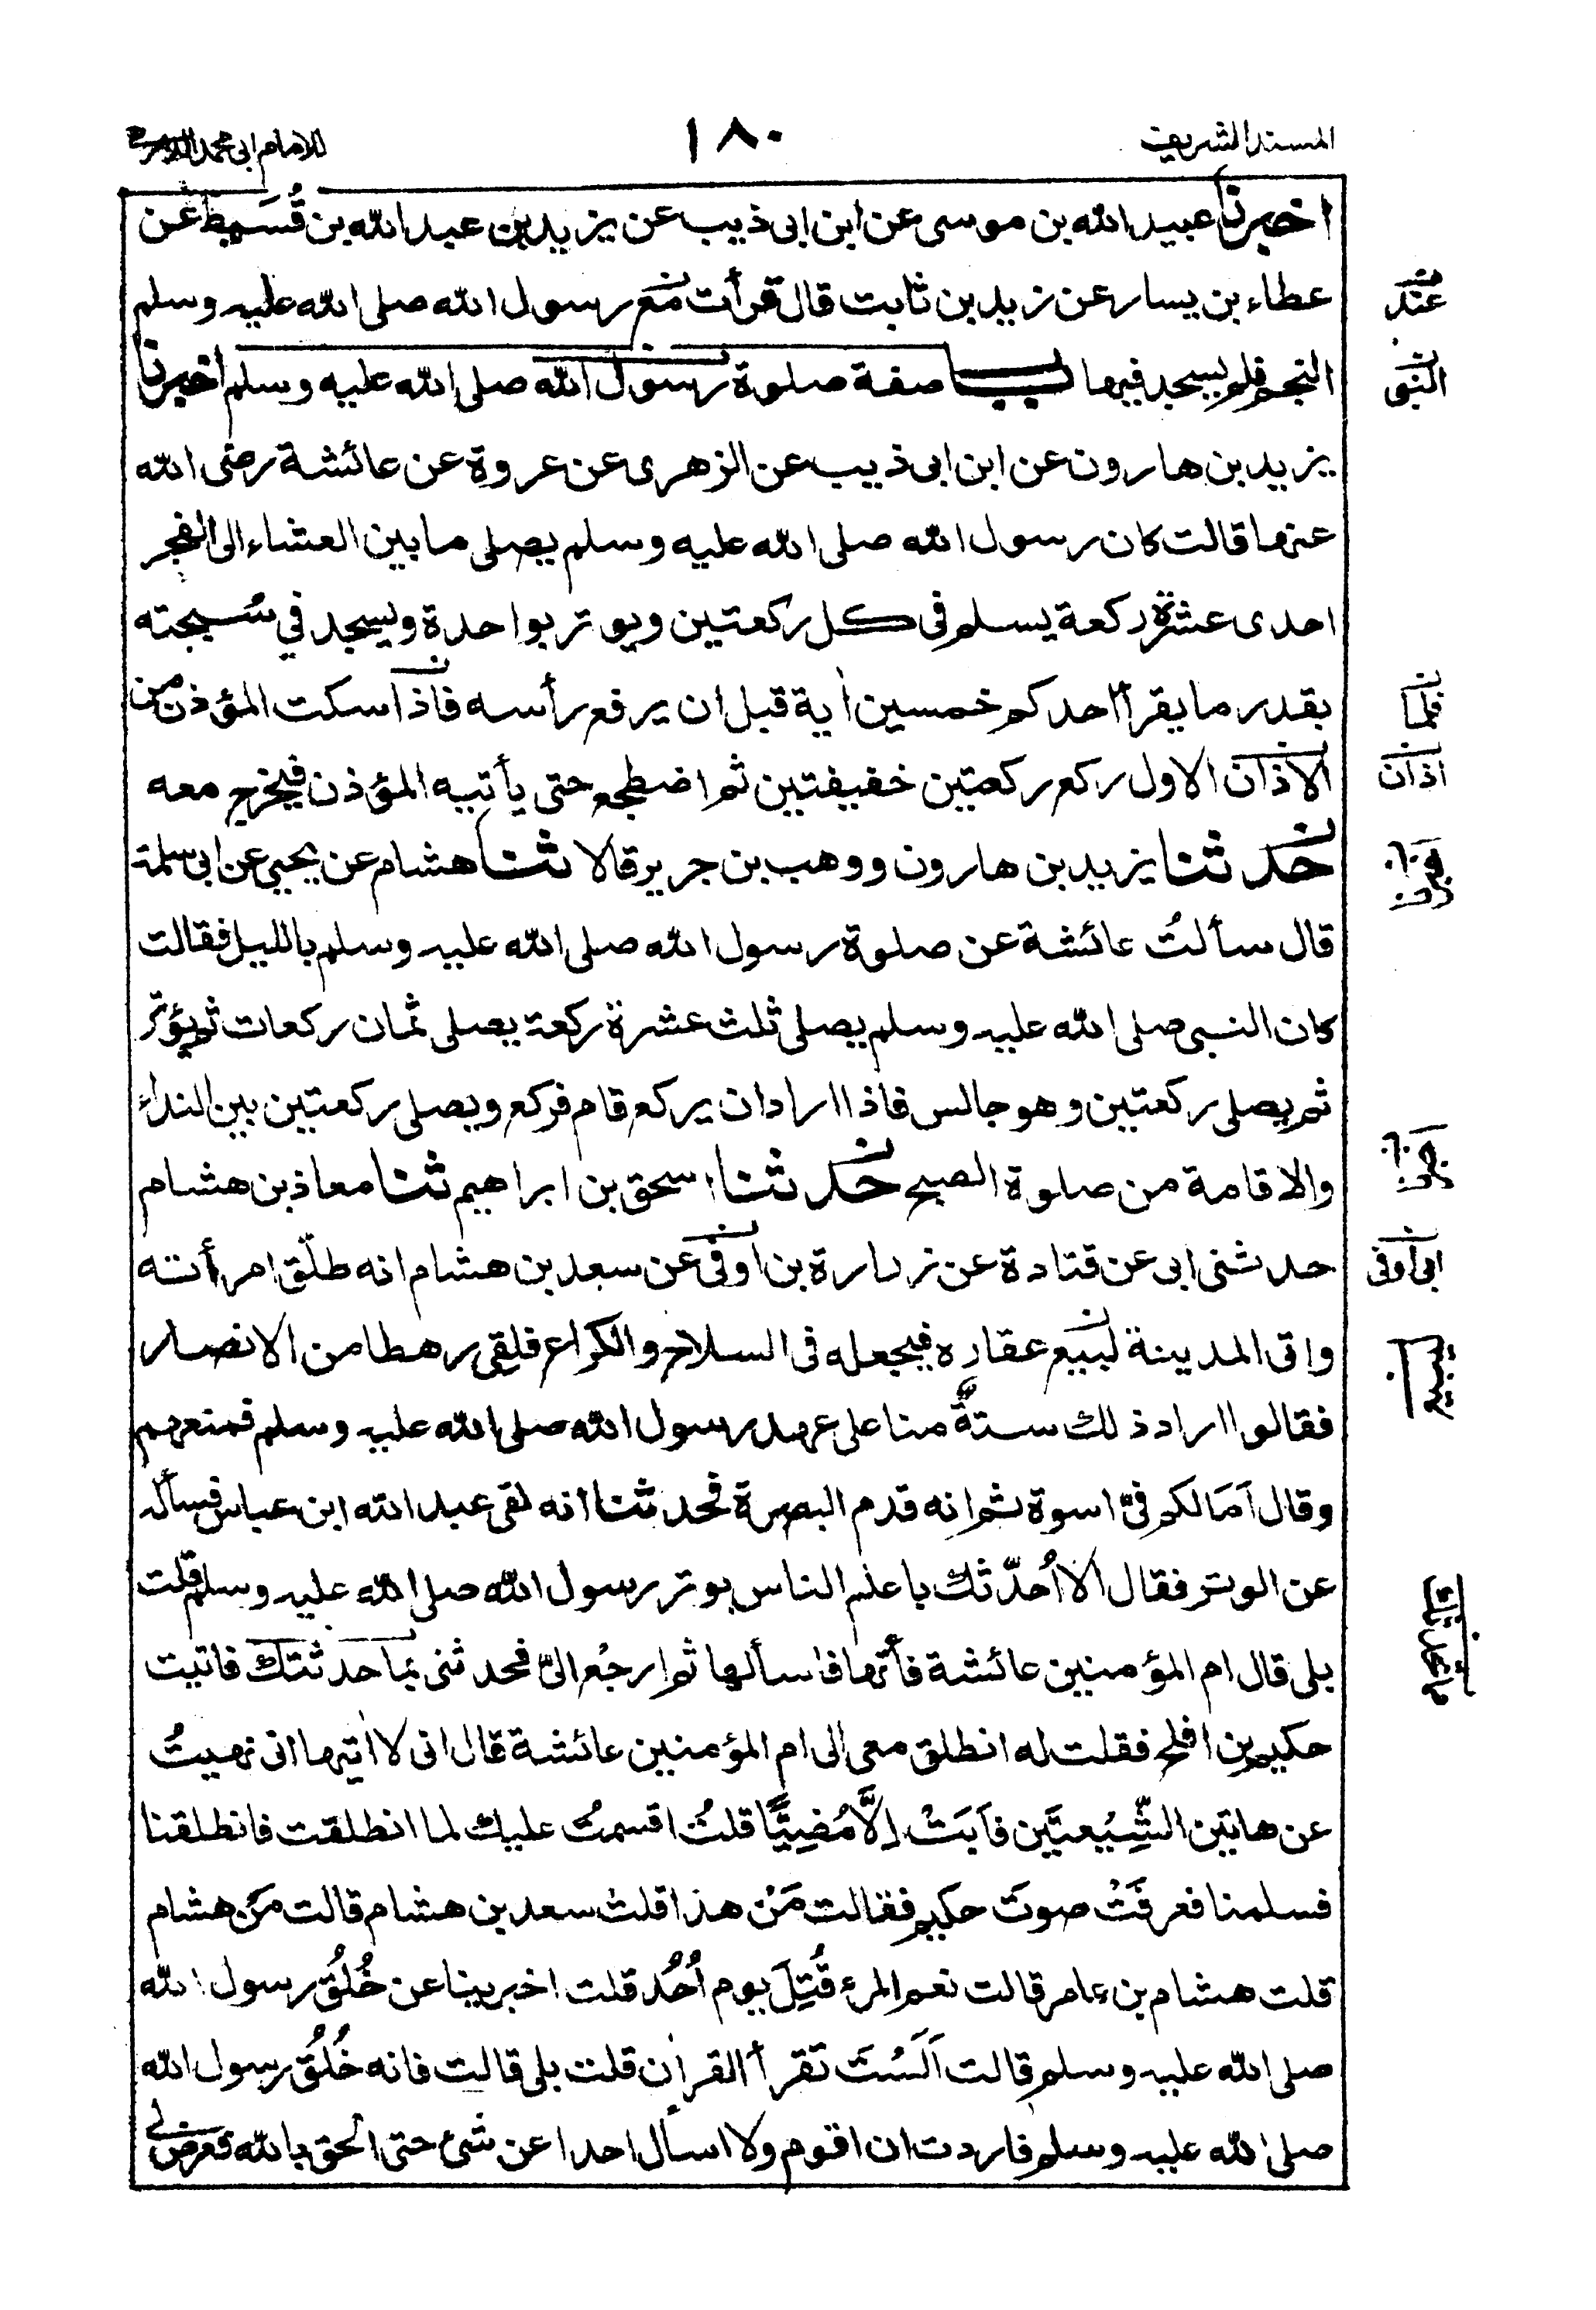 المسند الشريف ١٨٠ للامام ابى محمد الدارمى
اخبرنا عبيد الله بن موسى عن ابن ابى ذيب عن يزيد بن عبد الله بن قُسَيط عن
عطاء بن يسار عن زيد بن ثابت قال قرأت مع رسول الله صلى الله عليه وسلم
عند
النجم فلم يسجد فيها باب صفة صلوة رسول الله صلى الله عليه وسلم اخبرنا
النبى
يزيد بن هارون عن ابن ابى ذيب عن الزهرى عن عروة عن عائشة رضى الله
عنها قالت كان رسول الله صلى الله عليه وسلم يصلى ما بين العشاء الى الفجر
احدى عشرة ركعة يسلم فى كل ركعتين ويوتر بواحدة ويسجد في سُبحته
بقدر ما يقرأ احدكم خمسين اٰية قبل ان يرفع رأسه فاذا سكت المؤذن من
فلما
الاذان الاول ركع ركعتين خفيفتين ثم اضطجع حتى يأتيه المؤذن فيخرج معه
اذان
حدثنا يزيد بن هارون ووهب بن جرير قالا ثنا هشام عن يحيى عن ابى سلمة
قال سألتُ عائشة عن صلوة رسول الله صلى الله عليه وسلم بالليل فقالت
كان النبى صلى الله عليه وسلم يصلى ثلث عشرة ركعة يصلى ثمان ركعات ثم يوتر
ثم يصلى ركعتين وهو جالس فاذا اراد ان يركع قام فركع ويصلى ركعتين بين النداء
والاقامة من صلوة الصبح حدثنا اسحق بن ابراهيم ثنا معاذ بن هشام
حدثنى ابى عن قتادة عن زرارة بن اوفى عن سعد بن هشام انه طلّق امرأته
ابى اوفى
واتى المدينة لبيع عقاره فيجعله فى السلاح والكراع فلقى رهطا من الانصار
يبيع
فقالوا اراد ذلك ستةٌ منا على عهد رسول الله صلى الله عليه وسلم فمنعهم
وقال اَمَا لكم فىّ اسوة ثم انه قدم البصرة فحدثنا انه لقى عبد الله ابن عباس فسأله
عن الوتر فقال الا اُحدّثك باعلم الناس بوتر رسول الله صلى الله عليه وسلم قلت
بلى قال ام المؤمنين عائشة فأتها فاسألها ثم ارجُع الىّ فحدثنى بما حدثتك فاتيت
حكيم بن افلح فقلت له انطلق معى الى ام المؤمنين عائشة قال انى لا اٰتيها انى نهيتُ
عن هاتين الشِّيْعتَين فاَبَتْ اِلَّا مُضِيًّا قلتُ اقسمتُ عليك لما انطلقت فانطلقنا
فسلمنا فعرفَتْ صوتَ حكيم فقالت مَنْ هذا قلتُ سعد بن هشام قالت مَن هشام
قلت هشام بن عامر قالت نعم المرء قُتِلَ يوم اُحُد قلت اخبرينا عن خُلُق رسول الله
صلى الله عليه وسلم قالت اَلَسْتَ تقرأ القراٰن قلت بلى قالت فانه خُلُق رسول الله
صلى الله عليه وسلم فاردت ان اقوم ولا اسأل احدا عن شئ حتى الحق بالله فعرض لى